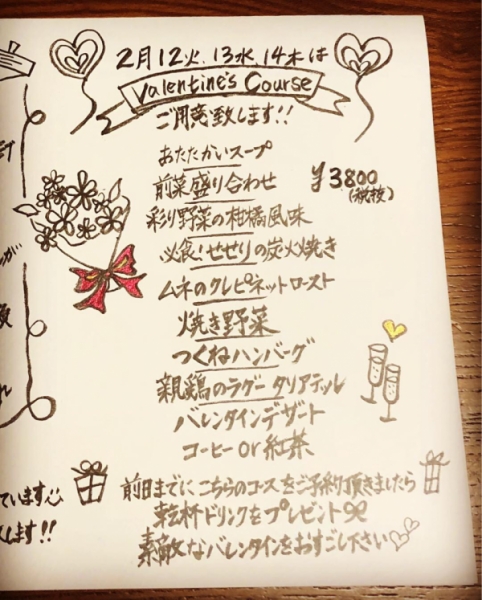 2月12火.13水.14木は
Valentine's Course
ご用意致します!!
あたたかいスープ
前菜盛り合わせ
¥3800
(税抜)
彩り野菜の柑橘風味
必食!せせりの炭火焼き
ムネのクレピネットロースト
焼き野菜
つくねハンバーグ
親鶏のラグー タリアテッレ
バレンタインデザート
コーヒー or 紅茶
前日までにこちらのコースをご予約頂きましたら
乾杯ドリンクをプレゼント
素敵なバレンタインをおすごし下さい
ています
します!!